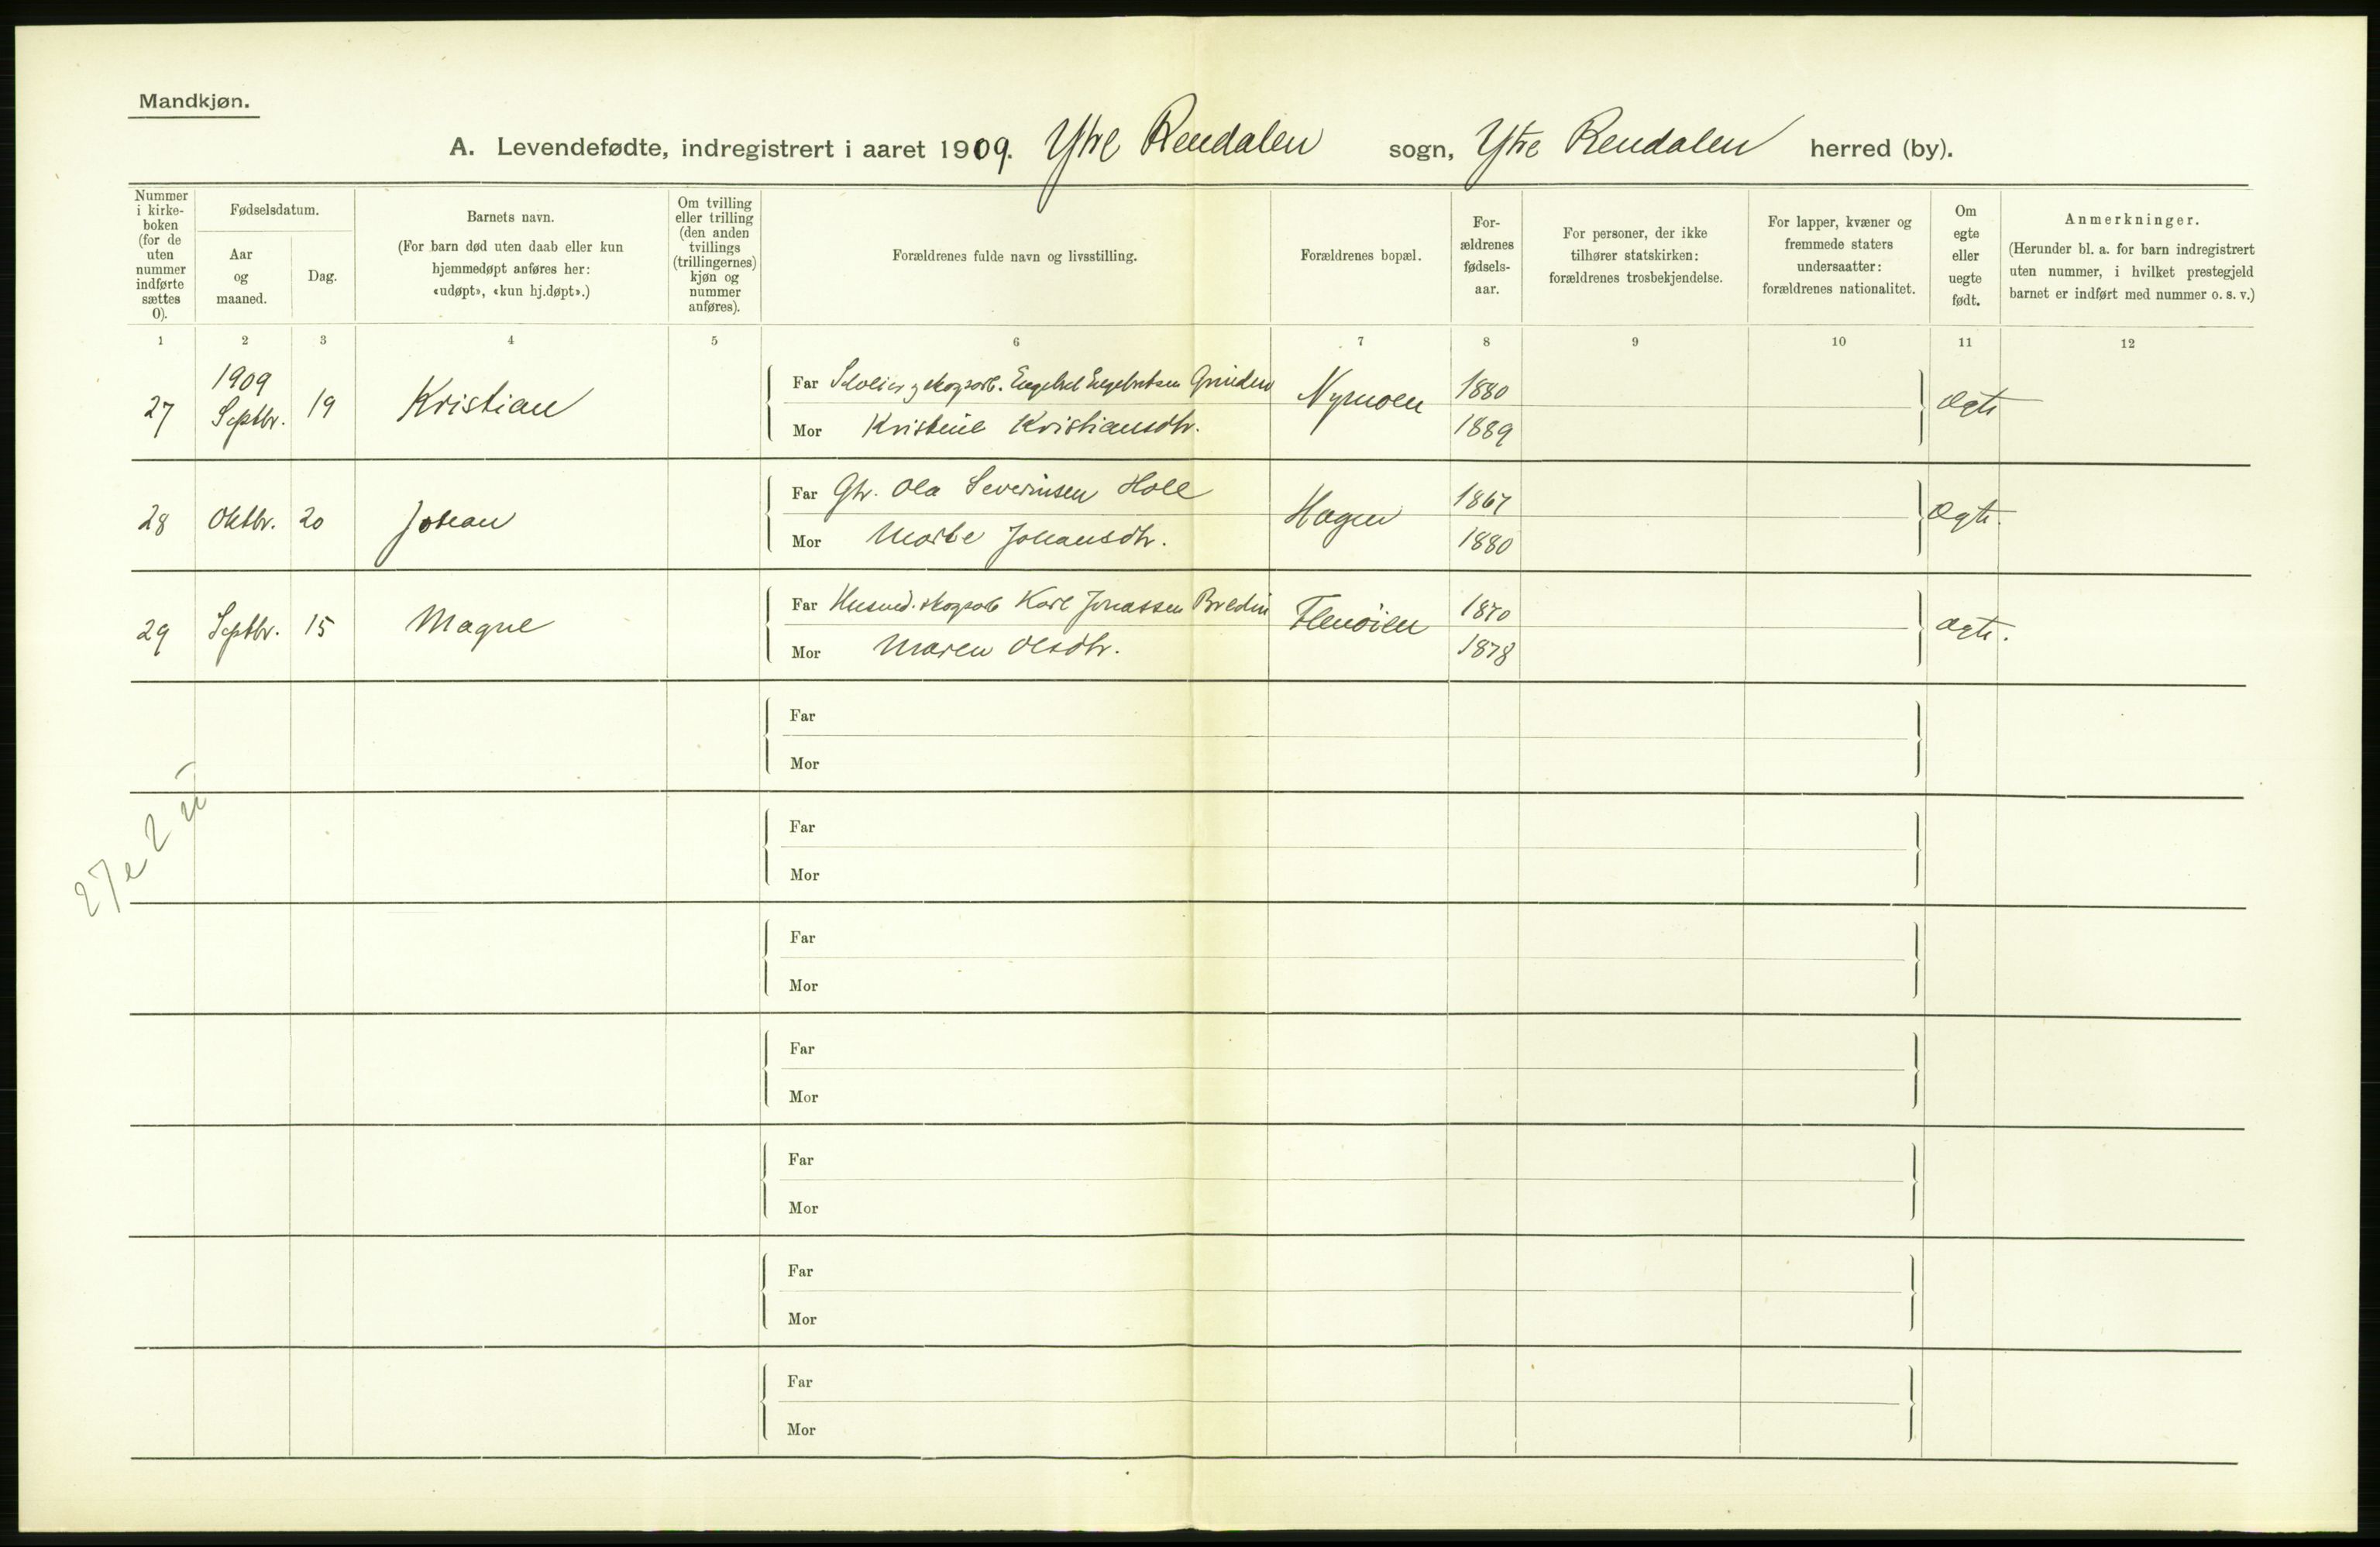 Mandkjøn.
A. Levendefødte, indregistrert i aaret 1909. Ytre Rendalen sogn, Ytre Rendalen herred (by).
Nummer i kirke-boken (for de uten nummer indførte sættes 0).
Fødselsdatum.
Aar og maaned.
Dag.
Barnets navn.
(For barn død uten daab eller kun hjemmedøpt anføres her: «udøpt», «kun hj.døpt».)
Om tvilling eller trilling (den anden tvillings (trillingernes) kjøn og nummer anføres).
Forældrenes fulde navn og livsstilling.
Forældrenes bopæl.
For-ældrenes fødsels-aar.
For personer, der ikke tilhører statskirken: forældrenes trosbekjendelse.
For lapper, kvæner og fremmede staters undersaatter: forældrenes nationalitet.
Om egte eller uegte født.
Anmerkninger.
(Herunder bl. a. for barn indregistrert uten nummer, i hvilket prestegjeld barnet er indført med nummer o. s. v.)
1 2 3 4 5 6 7 8 9 10 11 12
27 1909 Septbr. 19 Kristian Far Selveier g skogsarb. Engebret Engebretsen Grinden Nymoen 1880 Ægte
Mor Kristine Kristiansdtr. 1889
28 Oktbr. 20 Johan Far Gbr. Ola Severinsen Holl Hagen 1867 Ægte.
Mor Marte Johansdtr. 1880
29 Septbr. 15 Magne Far Husmd. skogsarb Karl Jonassen Bredin Flenøien 1870 Ægte.
Mor Maren Olsdtr. 1878
Far
Mor
Far
Mor
Far
Mor
Far
Mor
Far
Mor
Far
Mor
Far
Mor
27 e 2 u